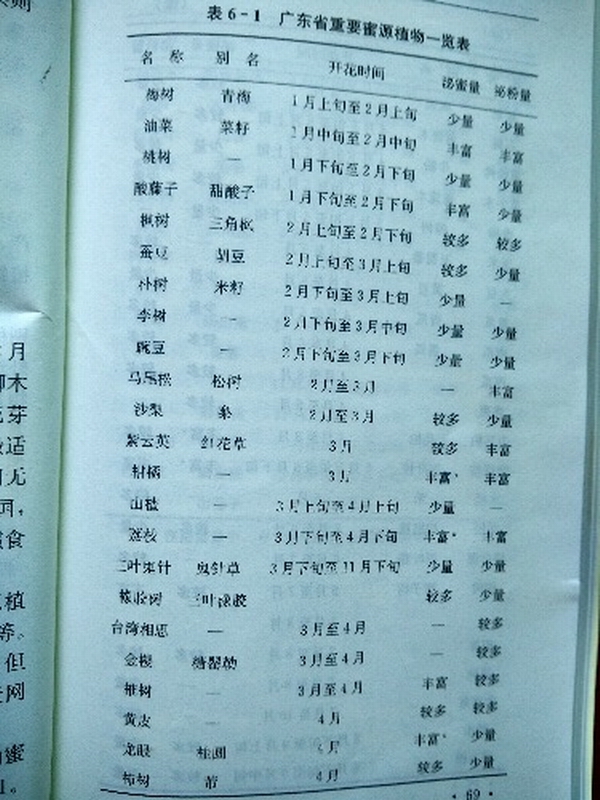 则
月
木
芽
适
无
食
植
等。
但
网
蜜
表6-1 广东省重要蜜源植物一览表
名 称 别 名 开花时间 泌蜜量 泌粉量
梅树 青梅 1月上旬至2月上旬 少量 少量
油菜 菜籽 1月中旬至2月中旬 丰富 丰富
桃树 — 1月下旬至2月下旬 少量 少量
酸藤子 甜酸子 1月下旬至2月下旬 丰富 少量
枫树 三角枫 2月上旬至2月下旬 较多 较多
蚕豆 胡豆 2月上旬至3月上旬 较多 少量
朴树 米籽 2月下旬至3月上旬 少量 —
李树 — 2月下旬至3月中旬 少量 少量
豌豆 — 2月下旬至3月下旬 少量 少量
马尾松 松树 2月至3月 — 丰富
沙梨 梨 2月至3月 较多 少量
紫云英 红花草 3月 较多 丰富
柑桔 — 3月 丰富* 丰富
山楂 — 3月上旬至4月上旬 少量 —
荔枝 — 3月下旬至4月下旬 丰富* 丰富
三叶鬼针 鬼针草 3月下旬至11月下旬 少量 少量
橡胶树 三叶橡胶 较多 少量
台湾相思 — 3月至4月 — 较多
金樱 糖罂勒 3月至4月 — 较多
椎树 — 3月至4月 丰富 较多
黄皮 — 4月 较多 较多
龙眼 桂圆 4月 丰富* 少量
柿树 4月 较多 少量
· 69 ·